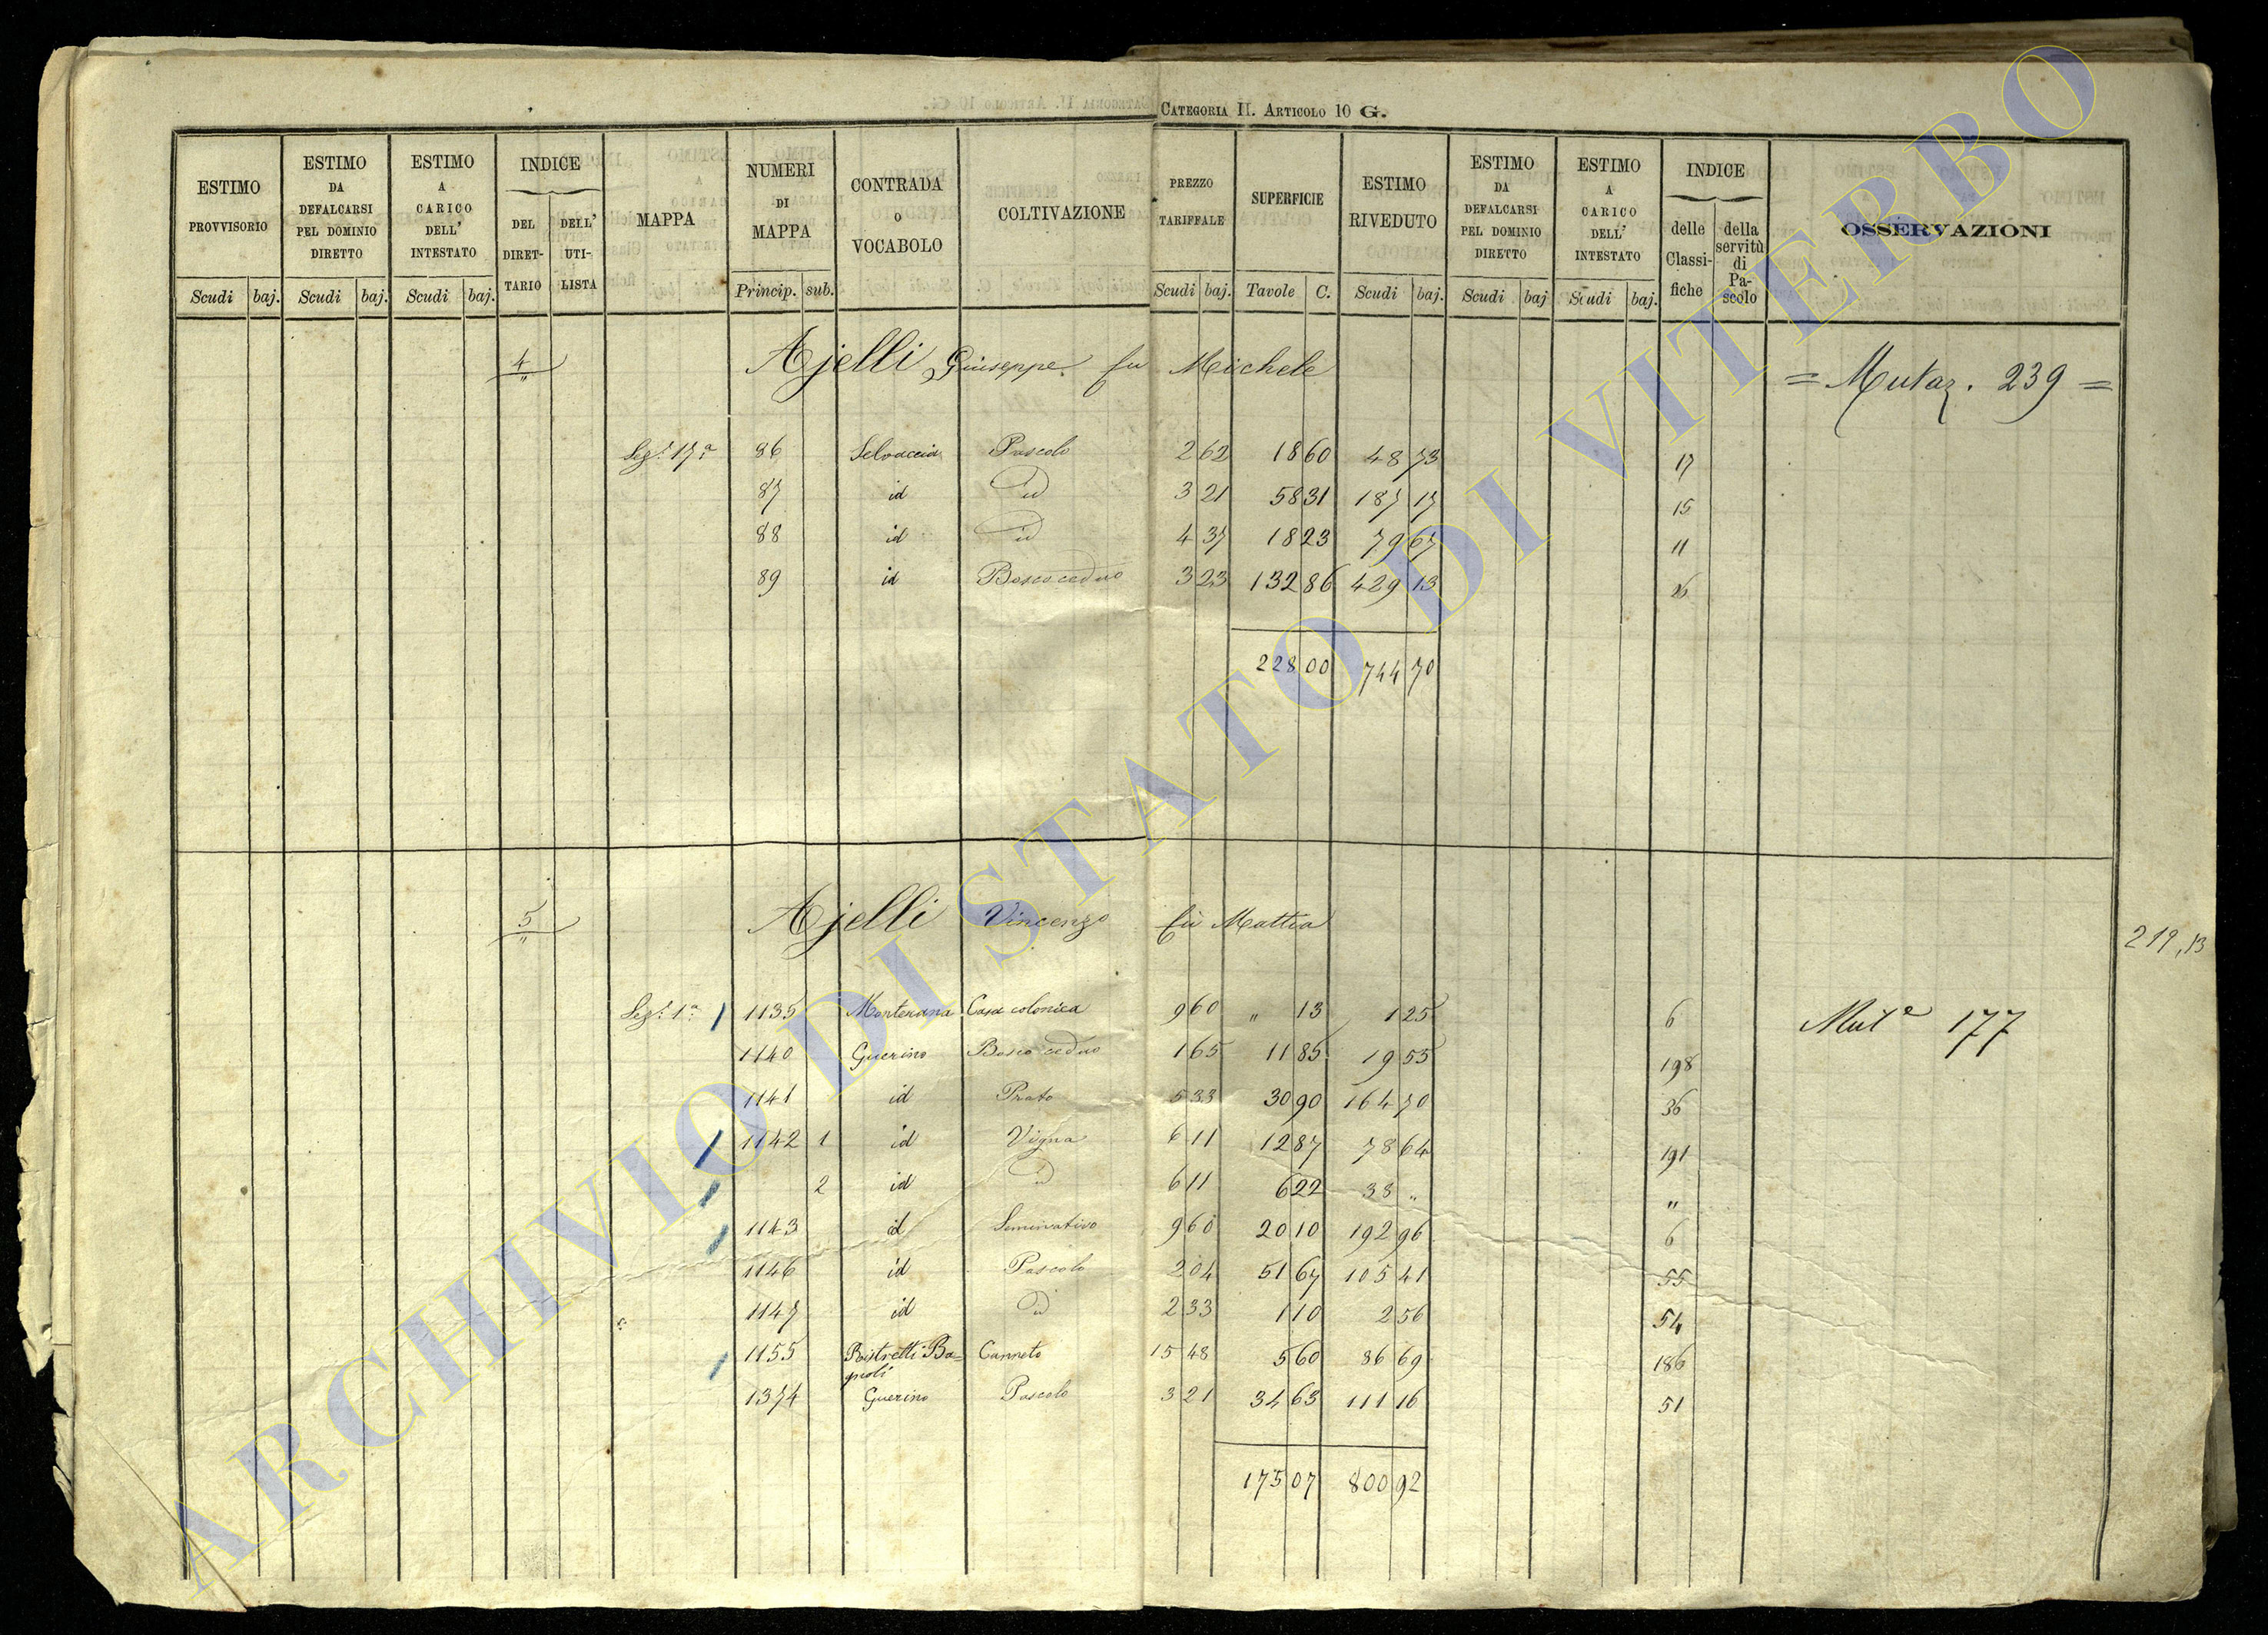 CATEGORIA II. ARTICOLO 10 G.
ESTIMO PROVVISORIO Scudi baj. | ESTIMO DA DEFALCARSI PEL DOMINIO DIRETTO Scudi baj. | ESTIMO A CARICO DELL' INTESTATO Scudi baj. | INDICE DEL DIRETTARIO DELL' UTILISTA | MAPPA | NUMERI DI MAPPA Princip. sub. | CONTRADA O VOCABOLO | COLTIVAZIONE | PREZZO TARIFFALE Scudi baj. | SUPERFICIE Tavole C. | ESTIMO RIVEDUTO Scudi baj. | ESTIMO DA DEFALCARSI PEL DOMINIO DIRETTO Scudi baj | ESTIMO A CARICO DELL' INTESTATO Scudi baj. | INDICE delle Classifiche della servitù di Pascolo | OSSERVAZIONI
4 Ajelli Giuseppe fu Michele = Mutaz. 239 =
Sez.e 17a 86 Selvaccia Pascolo 2 62 18 60 48 73 17
87 id id 3 21 58 31 187 17 15
88 id id 4 37 18 23 79 67 11
89 id Bosco ceduo 3 23 132 86 429 13 26
228 00 744 70
5 Ajelli Vincenzo fu Mattia 219,13
Sez.e 1a 1135 Montenana Casa colonica 9 60 " 13 1 25 6 Mute 177
1140 Guerino Bosco ceduo 1 65 11 85 19 55 198
1141 id Prato 5 33 30 90 164 70 36
1142 1 id Vigna 6 11 12 87 78 64 191
2 id id 6 11 6 22 38 " "
1143 id Seminativo 9 60 20 10 192 96 6
1146 id Pascolo 2 04 51 67 105 41 55
1147 id id 2 33 1 10 2 56 54
1155 Ristretti Bagnoli Canneto 15 48 5 60 86 69 186
1374 Guerino Pascolo 3 21 34 63 111 16 51
175 07 800 92
ARCHIVIO DI STATO DI VITERBO